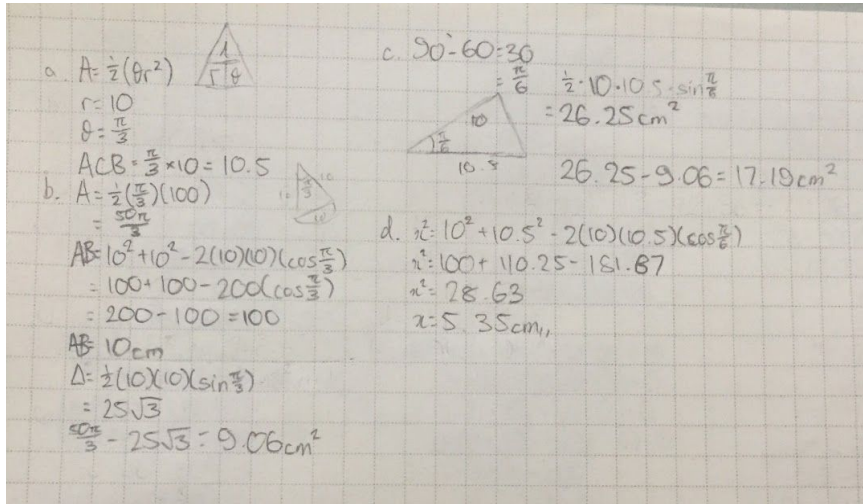 a. A = ½(θr²)
l
r θ
r = 10
θ = π/3
ACB = π/3 × 10 = 10.5
b. A = ½(π/3)(100)
= 50π/3
π/3
10
10
AB = 10² + 10² - 2(10)(10)(cos π/3)
= 100 + 100 - 200(cos π/3)
= 200 - 100 = 100
AB = 10cm
Δ = ½(10)(10)(sin π/3)
= 25√3
50π/3 - 25√3 = 9.06cm²
c. 90° - 60 = 30
= π/6
10
π/6
10.5
½ · 10 · 10.5 · sin π/6
= 26.25cm²
26.25 - 9.06 = 17.19cm²
d. x² = 10² + 10.5² - 2(10)(10.5)(cos π/6)
x² = 100 + 110.25 - 181.87
x² = 28.63
x = 5.35cm,,